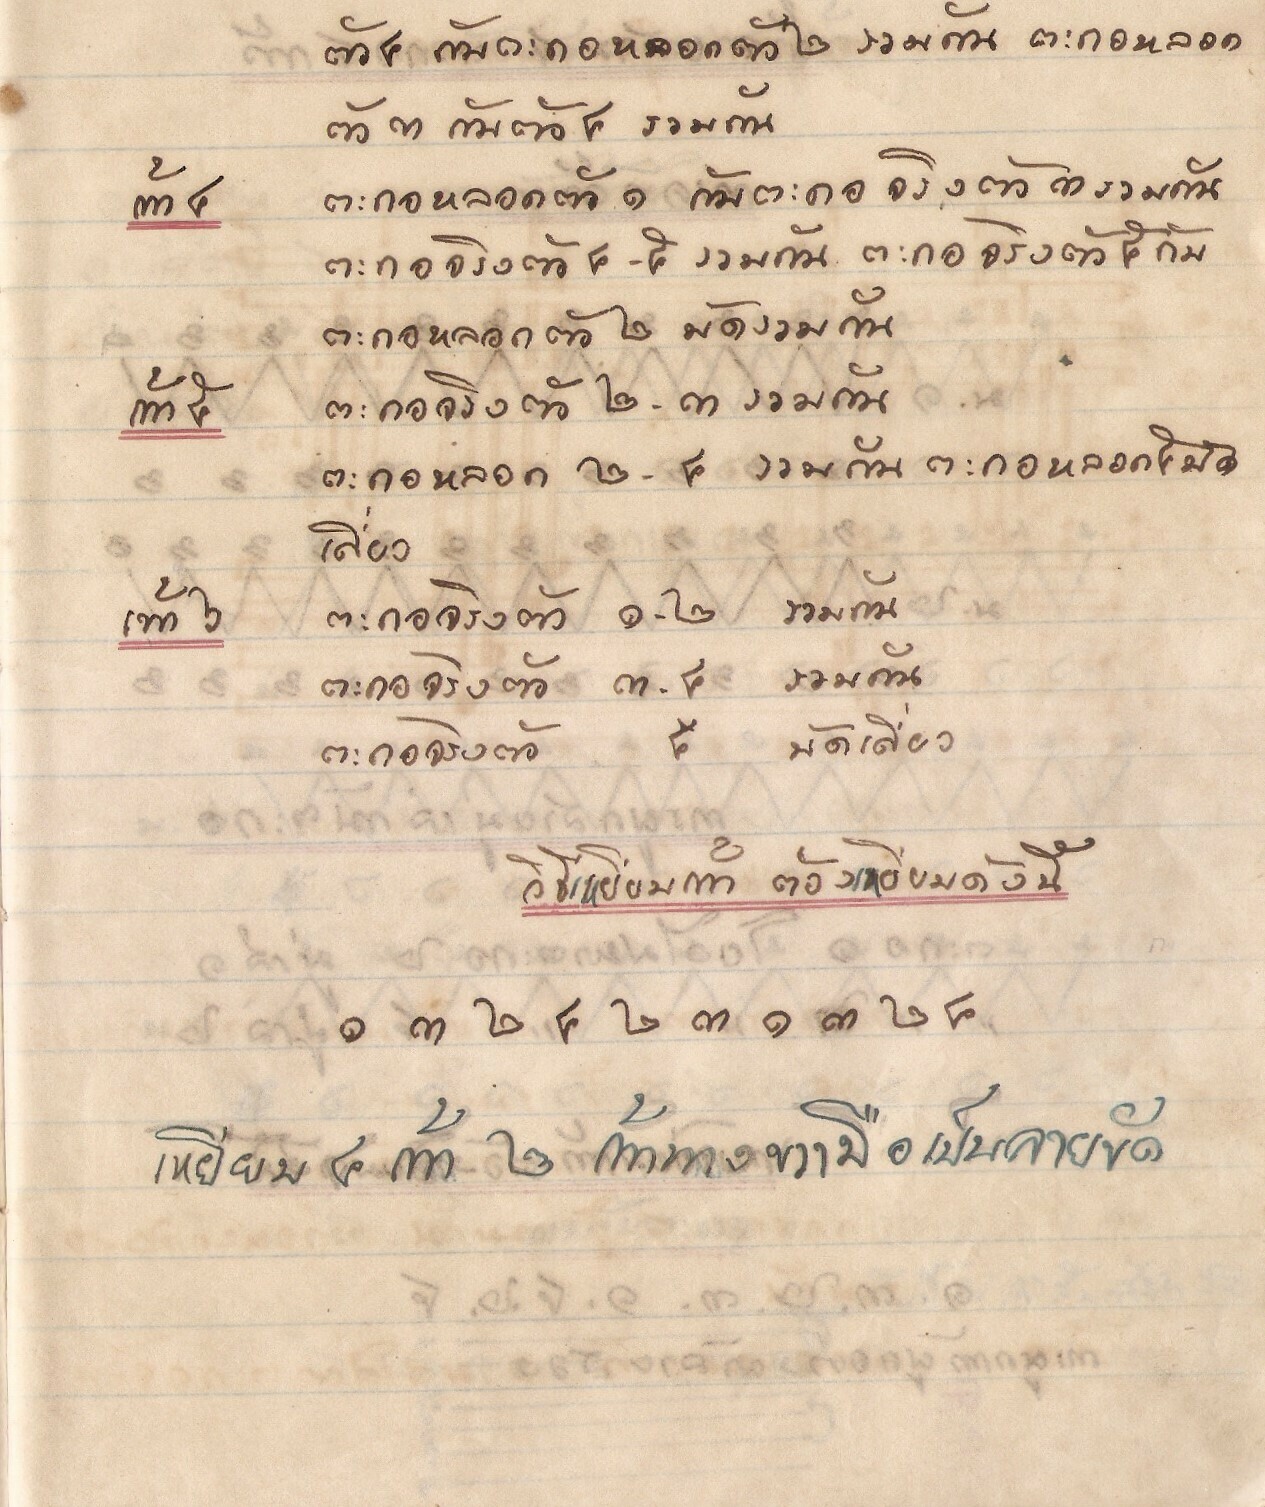 ตัว ๔ กับตะกอหลอกตัว ๒ รวมกัน ตะกอหลอก
ตัว ๓ กับตัว ๔ รวมกัน
เท้า ๔ ตะกอหลอกตัว ๑ กับตะกอจริงตัว ๓ รวมกัน
ตะกอจริงตัว ๔ - ๕ รวมกัน ตะกอจริงตัว ๕ กับ
ตะกอหลอกตัว ๒ มัดรวมกัน
เท้า ๕ ตะกอจริงตัว ๒ - ๓ รวมกัน
ตะกอหลอก ๒ - ๔ รวมกัน ตะกอหลอก ๕ มัด
เดี่ยว
เท้า ๖ ตะกอจริงตัว ๑ - ๒ รวมกัน
ตะกอจริงตัว ๓ - ๔ รวมกัน
ตะกอจริงตัว ๕ มัดเดี่ยว
วิธีเหยียบเท้า ต้องเหยียบดังนี้
๑ ๓ ๒ ๔ ๒ ๓ ๑ ๓ ๒ ๔
เหยียบ ๔ เท้า ๒ เท้าทางขวามือเป็นลายขัด